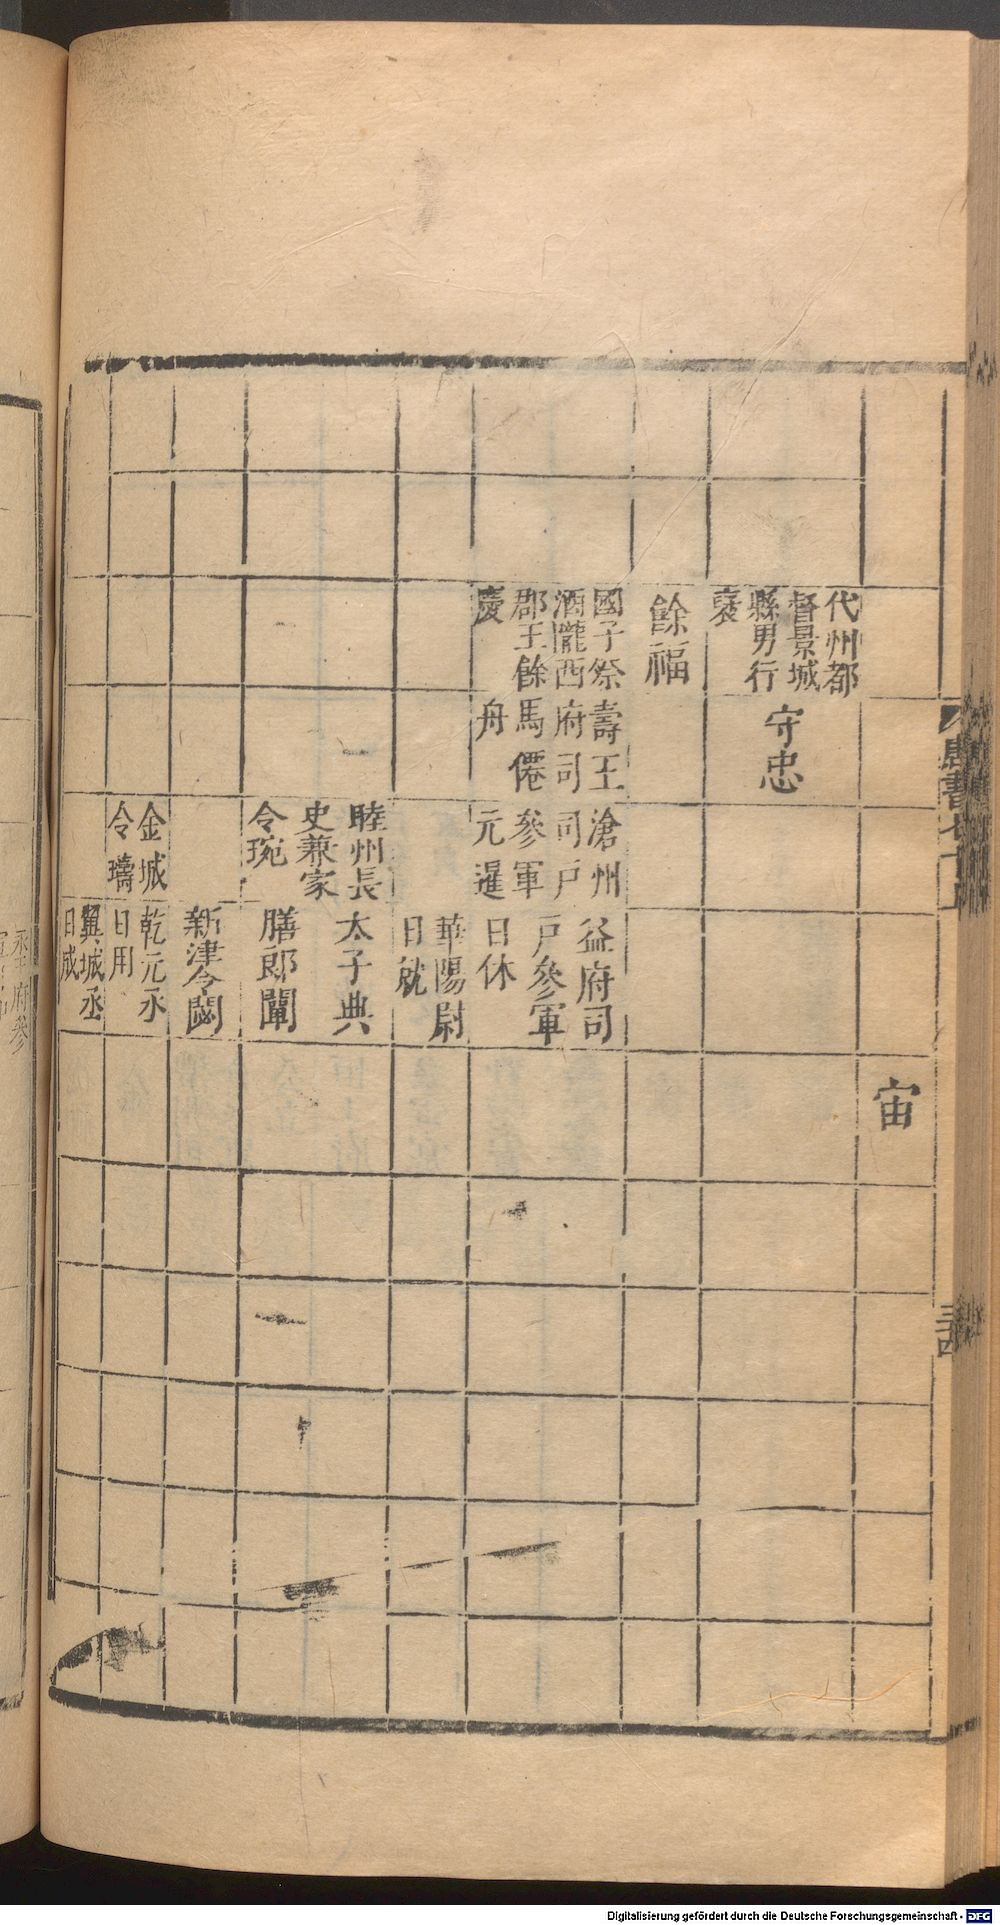 宙
代州都
督景城
縣男行
褒
守忠
餘福
國子祭
酒隴西
郡王餘
慶
壽王
府司
馬僊
舟
滄州
司戶
參軍
元暹
益府司
戶參軍
日休
華陽尉
日就
睦州長
史兼家
令琬
太子典
膳郎闡
新津令闕
金城
令璹
乾元丞
日用
翼城丞
日成
唐書七十上
三十四
丞府參
Digitalisierung gefördert durch die Deutsche Forschungsgemeinschaft - DFG